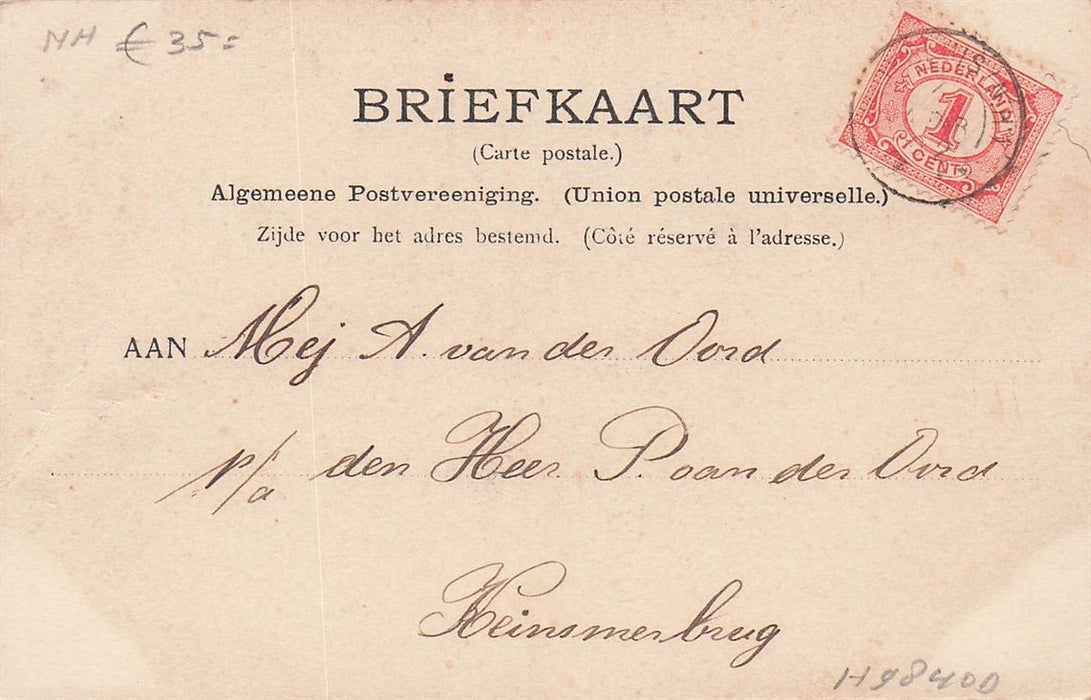 NH € 35=
NEDERLAND
1
CENT
BRIEFKAART
(Carte postale.)
Algemeene Postvereeniging. (Union postale universelle.)
Zijde voor het adres bestemd. (Côté réservé à l'adresse.)
AAN Mej A. van der Oord
p/a den Heer P. van der Oord
Heinsmerbrug
H98400